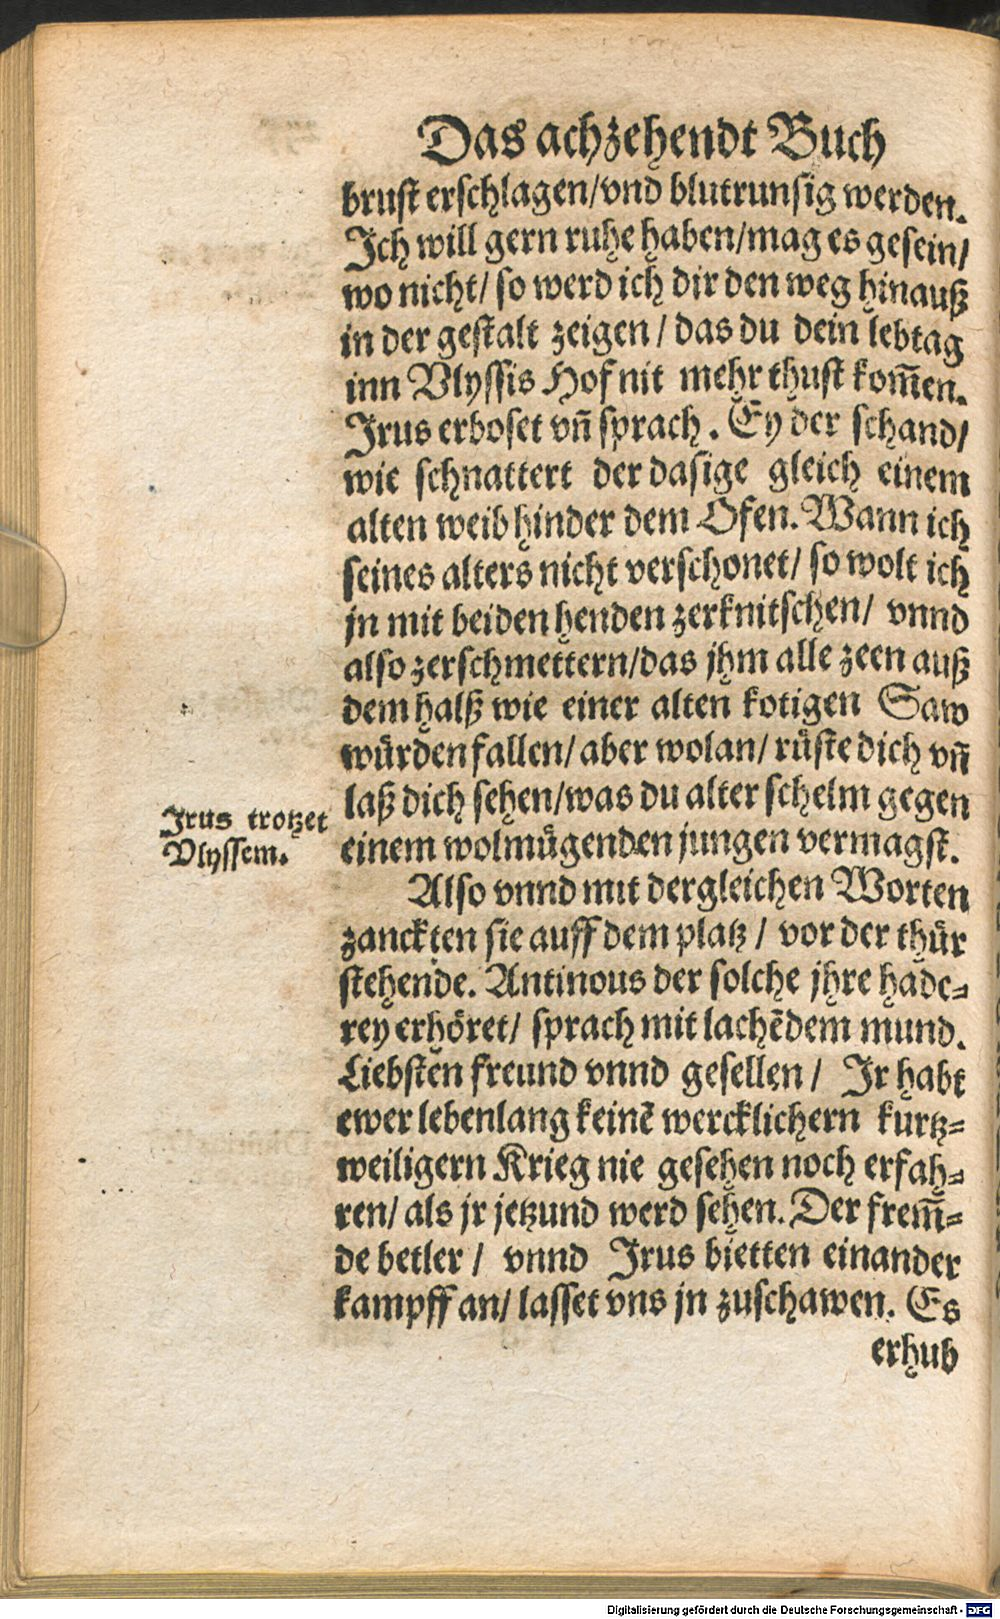 Das achzehendt Buch
brust erschlagen/vnd blutrunsig werden.
Ich will gern ruhe haben/mag es gesein/
wo nicht/ so werd ich dir den weg hinauß
in der gestalt zeigen / das du dein lebtag
inn Vlyssis Hof nit mehr thust kom̃en.
Irus erboset vñ sprach. Ey der schand/
wie schnattert der dasige gleich einem
alten weib hinder dem Ofen. Wann ich
seines alters nicht verschonet/ so wolt ich
jn mit beiden henden zerknitschen/ vnnd
also zerschmettern/das jhm alle zeen auß
dem halß wie einer alten kotigen Saw
wuͤrden fallen/ aber wolan/ ruͤste dich vñ
laß dich sehen/was du alter schelm gegen
Irus trotzet
Vlyssem.
einem wolmuͤgenden jungen vermagst.
Also vnnd mit dergleichen Worten
zanckten sie auff dem platz / vor der thuͤr
stehende. Antinous der solche jhre hade⸗
rey erhoͤret/ sprach mit lachẽdem mund.
Liebsten freund vnnd gesellen / Ir habt
ewer lebenlang keinẽ wercklichern kurtz⸗
weiligern Krieg nie gesehen noch erfah⸗
ren/ als jr jetzund werd sehen. Der frem̃⸗
de betler / vnnd Irus bietten einander
kampff an/ lasset vns jn zuschawen. Es
erhub
Digitalisierung gefördert durch die Deutsche Forschungsgemeinschaft - DFG